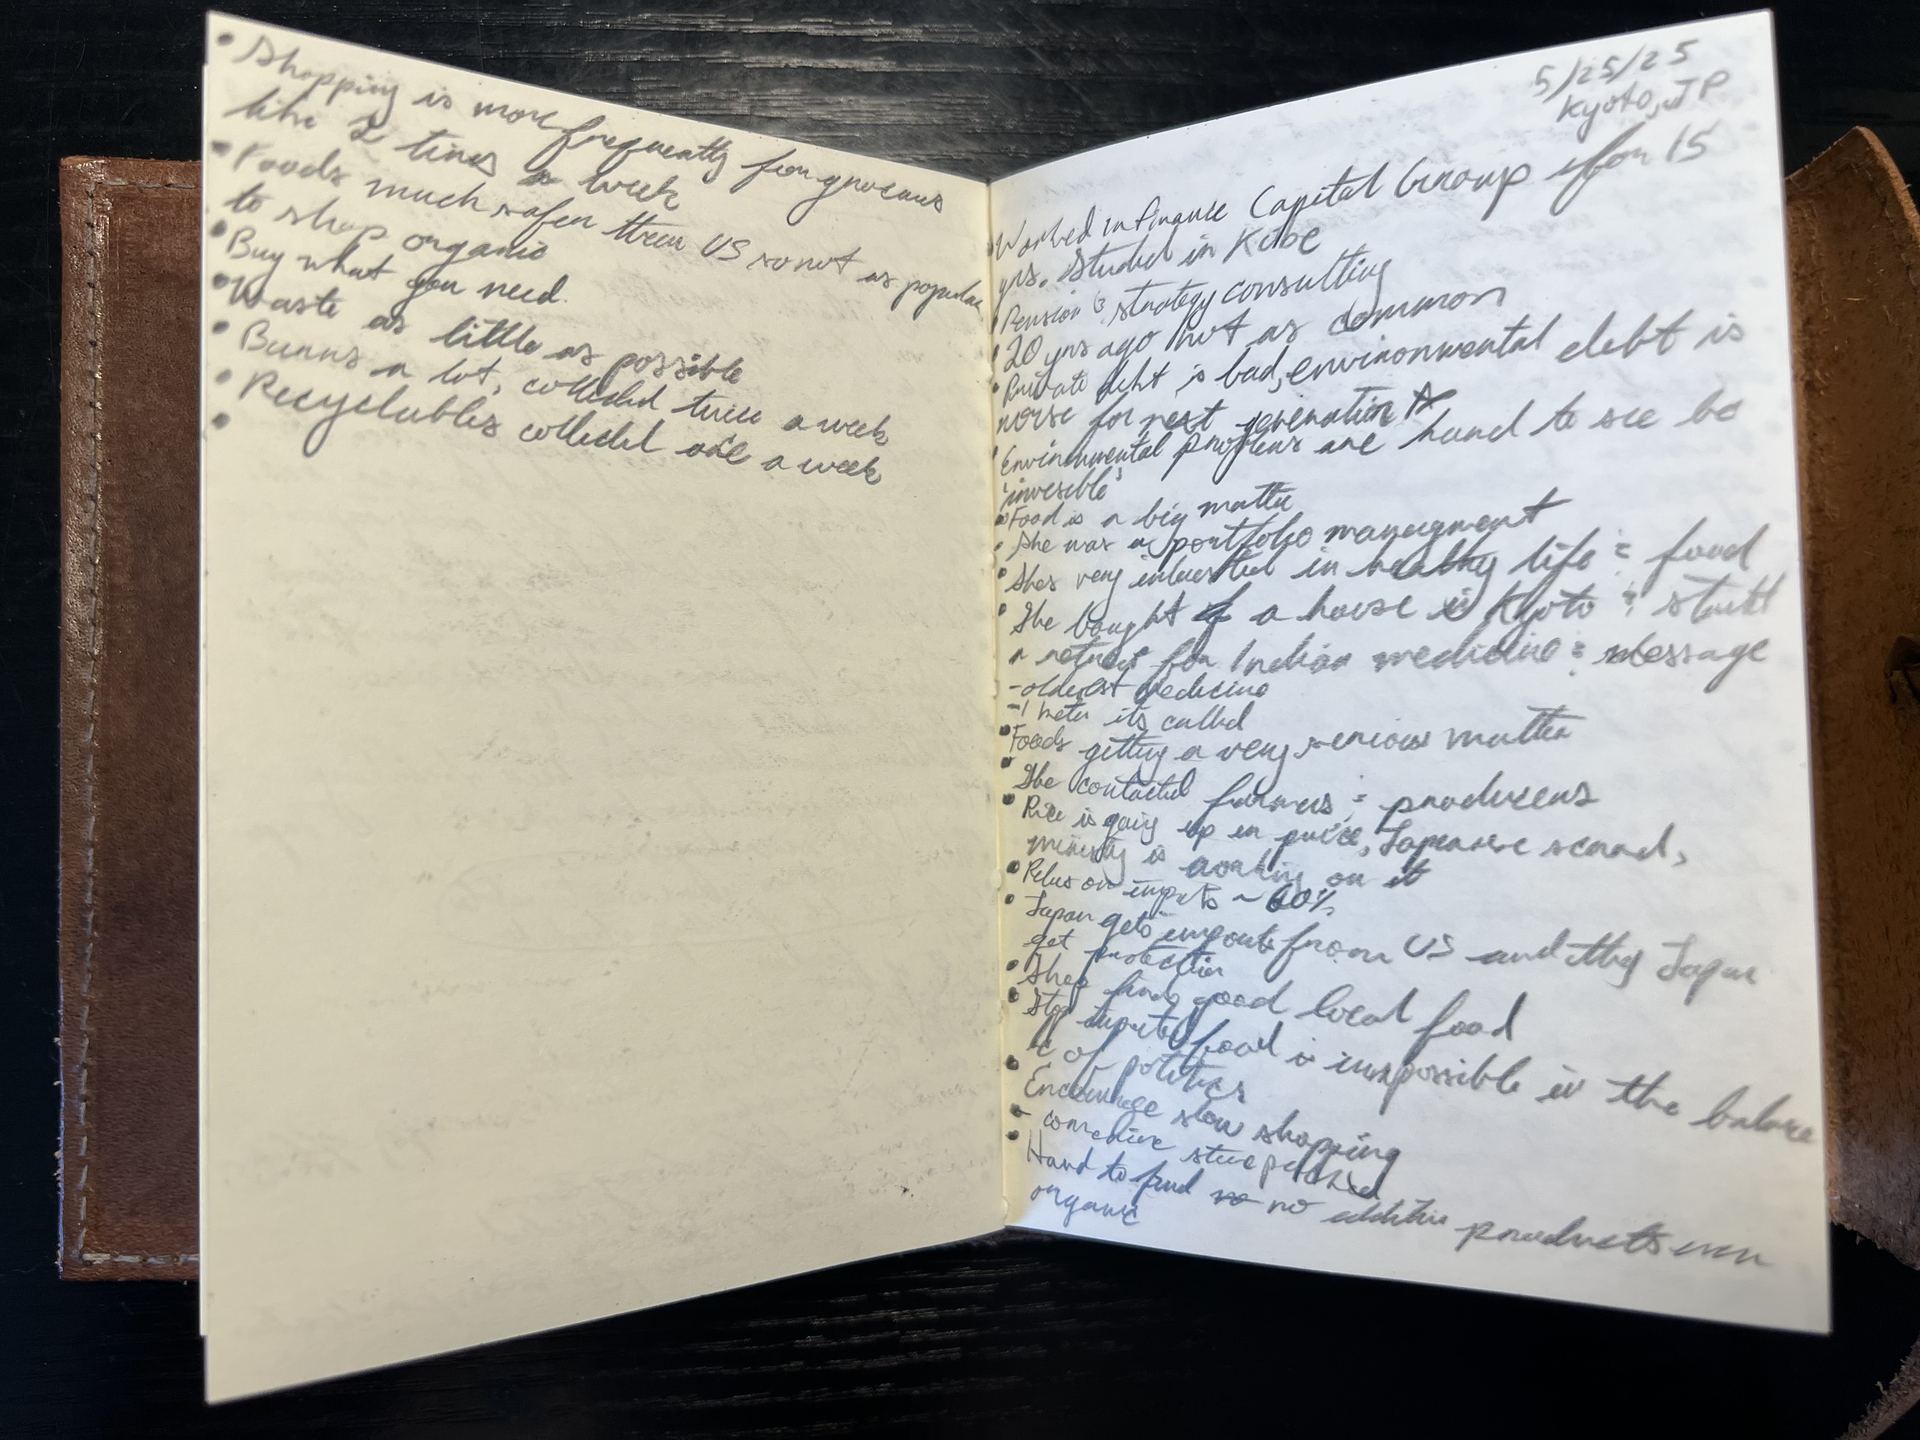 • Shopping is more frequently for groceries
like 2 times a week
• Foods much safer then US so not as popular
to shop organic
• Buy what you need.
• Waste as little as possible
• Burns a lot, collected twice a week
• Recyclables collected once a week
•
5/25/25
Kyoto, JP
• Worked in finance Capital Group for 15
yrs. Studied in Kobe
• Pension & strategy consulting
• 20 yrs ago not as common
• Private debt is bad, environmental debt is
worse for next generation ☆
• Environmental problems are hard to see bc
'invesible'
• Food is a big matter
• She was a portfolio managment
• Shes very interested in healthy life & food
• She bought a house in Kyoto & start
a retreat for Indian medicine & message
- oldest medicine
• Foods getting a very serious matter
• She contacted farmers & producers
• Rice is going up in price, Japenese scared,
ministry is working on it
• Relies on imports ~ 60%
• Japan gets imports from US and they Japan
get protection
• Shop finds good local food
• Stop imported food is impossible in the balance
of politics
• Encourage slow shopping
- convenience store packed
• Hard to find no additive products even
organic